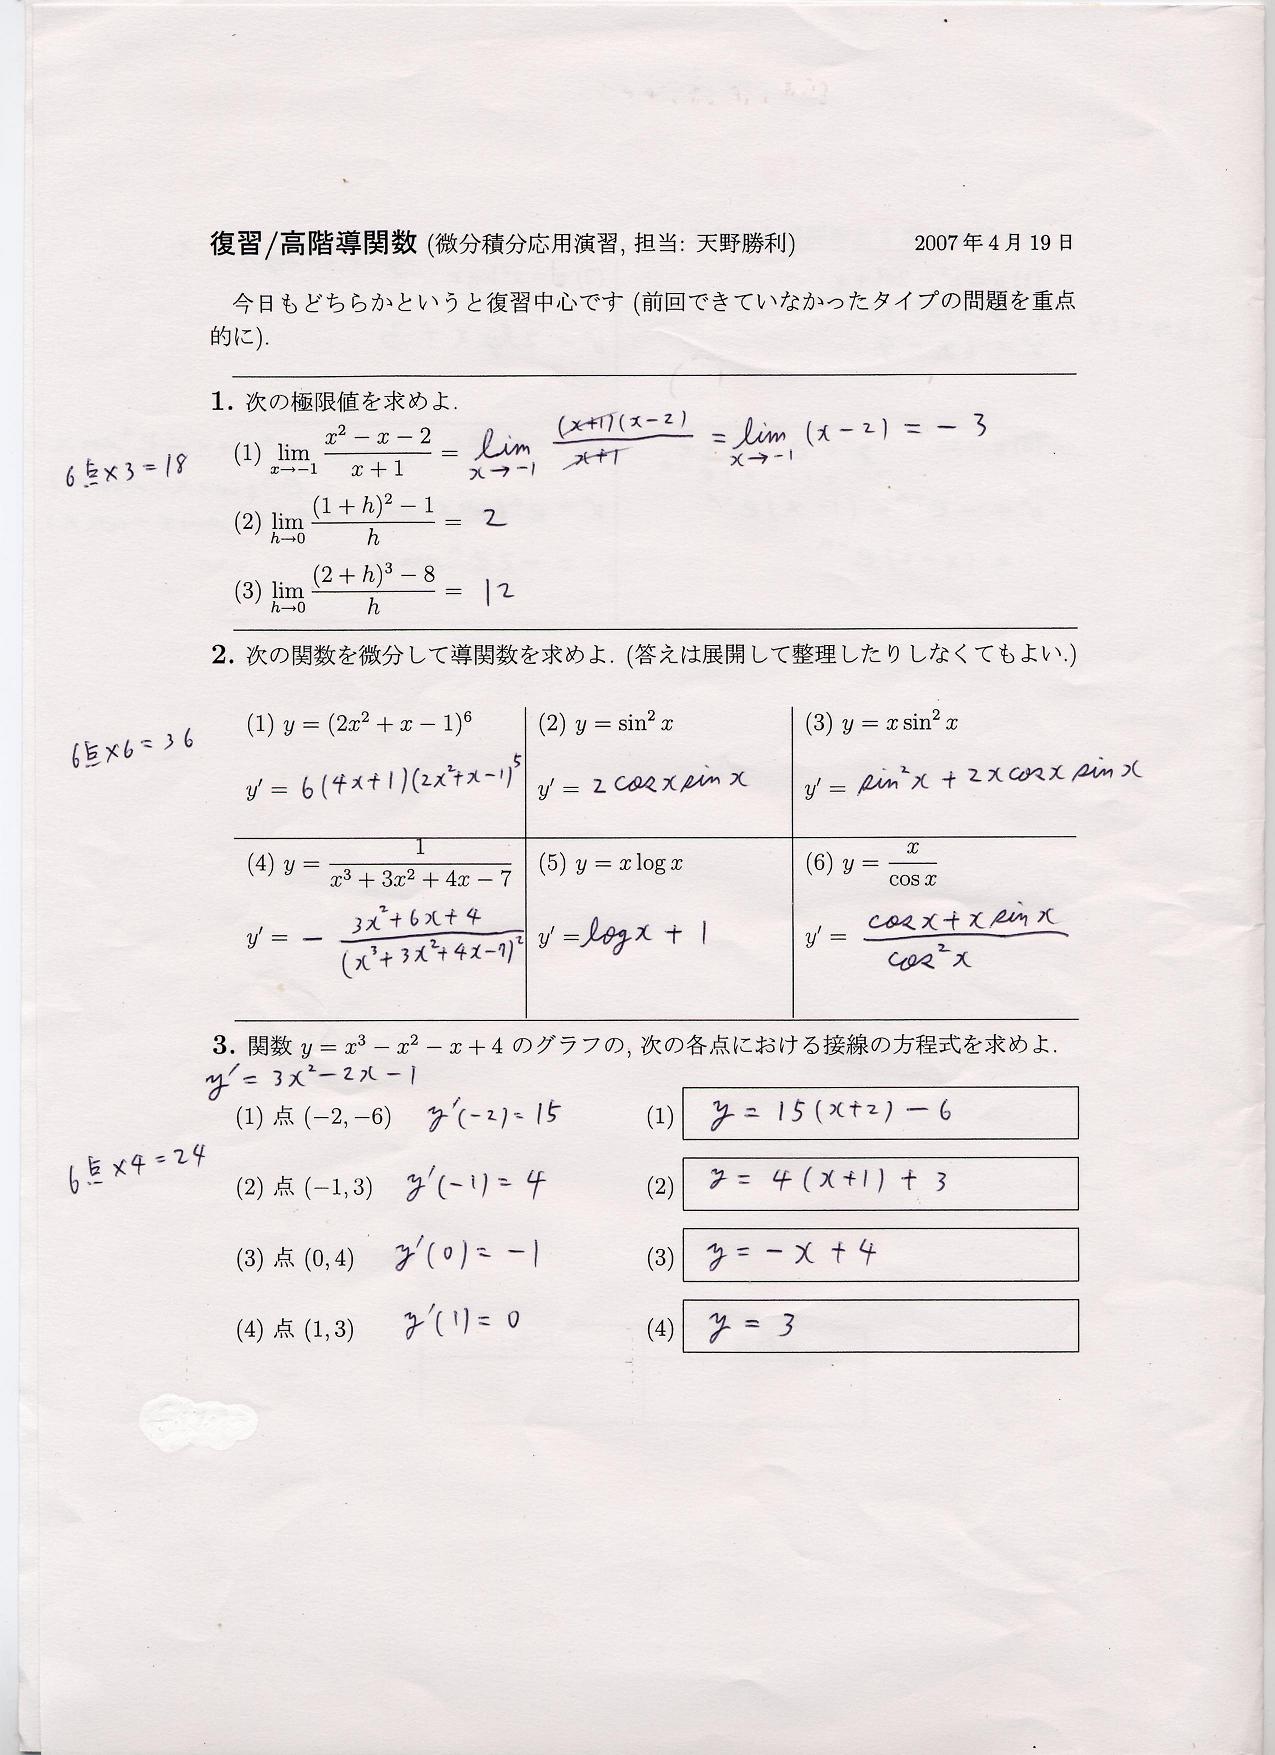 復習/高階導関数 (微分積分応用演習, 担当: 天野勝利) 2007 年 4 月 19 日
今日もどちらかというと復習中心です (前回できていなかったタイプの問題を重点
的に).
1. 次の極限値を求めよ.
(1) lim_{x→−1} (x² − x − 2)/(x + 1) = lim_{x→−1} (x+1)(x−2)/(x+1) = lim_{x→−1} (x−2) = −3
6点×3=18
(2) lim_{h→0} ((1 + h)² − 1)/h = 2
(3) lim_{h→0} ((2 + h)³ − 8)/h = 12
2. 次の関数を微分して導関数を求めよ. (答えは展開して整理したりしなくてもよい.)
6点×6=36
(1) y = (2x² + x − 1)⁶ (2) y = sin² x (3) y = x sin² x
y′ = 6(4x+1)(2x²+x−1)⁵ y′ = 2 cos x sin x y′ = sin²x + 2x cos x sin x
(4) y = 1/(x³ + 3x² + 4x − 7) (5) y = x log x (6) y = x/cos x
y′ = − (3x²+6x+4)/(x³+3x²+4x−7)² y′ = log x + 1 y′ = (cos x + x sin x)/cos²x
3. 関数 y = x³ − x² − x + 4 のグラフの, 次の各点における接線の方程式を求めよ.
y′ = 3x²−2x−1
(1) 点 (−2, −6) y′(−2) = 15 (1) y = 15(x+2) − 6
6点×4=24
(2) 点 (−1, 3) y′(−1) = 4 (2) y = 4(x+1) + 3
(3) 点 (0, 4) y′(0) = −1 (3) y = −x + 4
(4) 点 (1, 3) y′(1) = 0 (4) y = 3